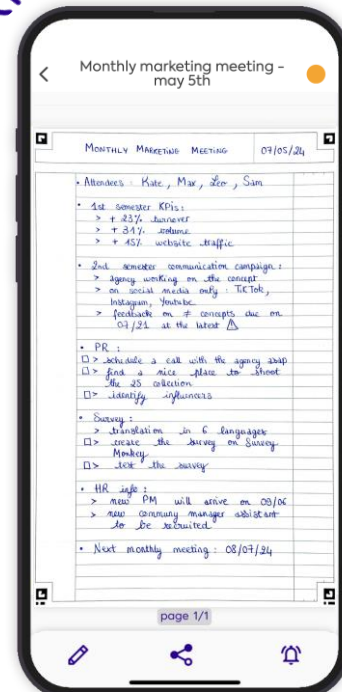 Monthly marketing meeting -
may 5th
MONTHLY MARKETING MEETING 07/05/24
• Attendees : Kate, Max, Leo, Sam
• 1st semester KPIs :
> + 23% turnover
> + 31% volume
> + 45% website traffic
• 2nd semester communication campaign :
> agency working on the concept
> on social media only : TikTok,
Instagram, Youtube
> feedback on ≠ concepts due on
07/21 at the latest ⚠
• PR :
☐ > schedule a call with the agency asap
☐ > find a nice place to shoot
the 25 collection
☐ > identify influencers
• Survey :
> translation in 6 languages
☐ > create the survey on Survey
Monkey
☐ > test the survey
• HR info :
> new PM will arrive on 09/06
> new communy manager assistant
to be recruited
• Next monthly meeting : 08/07/24
page 1/1